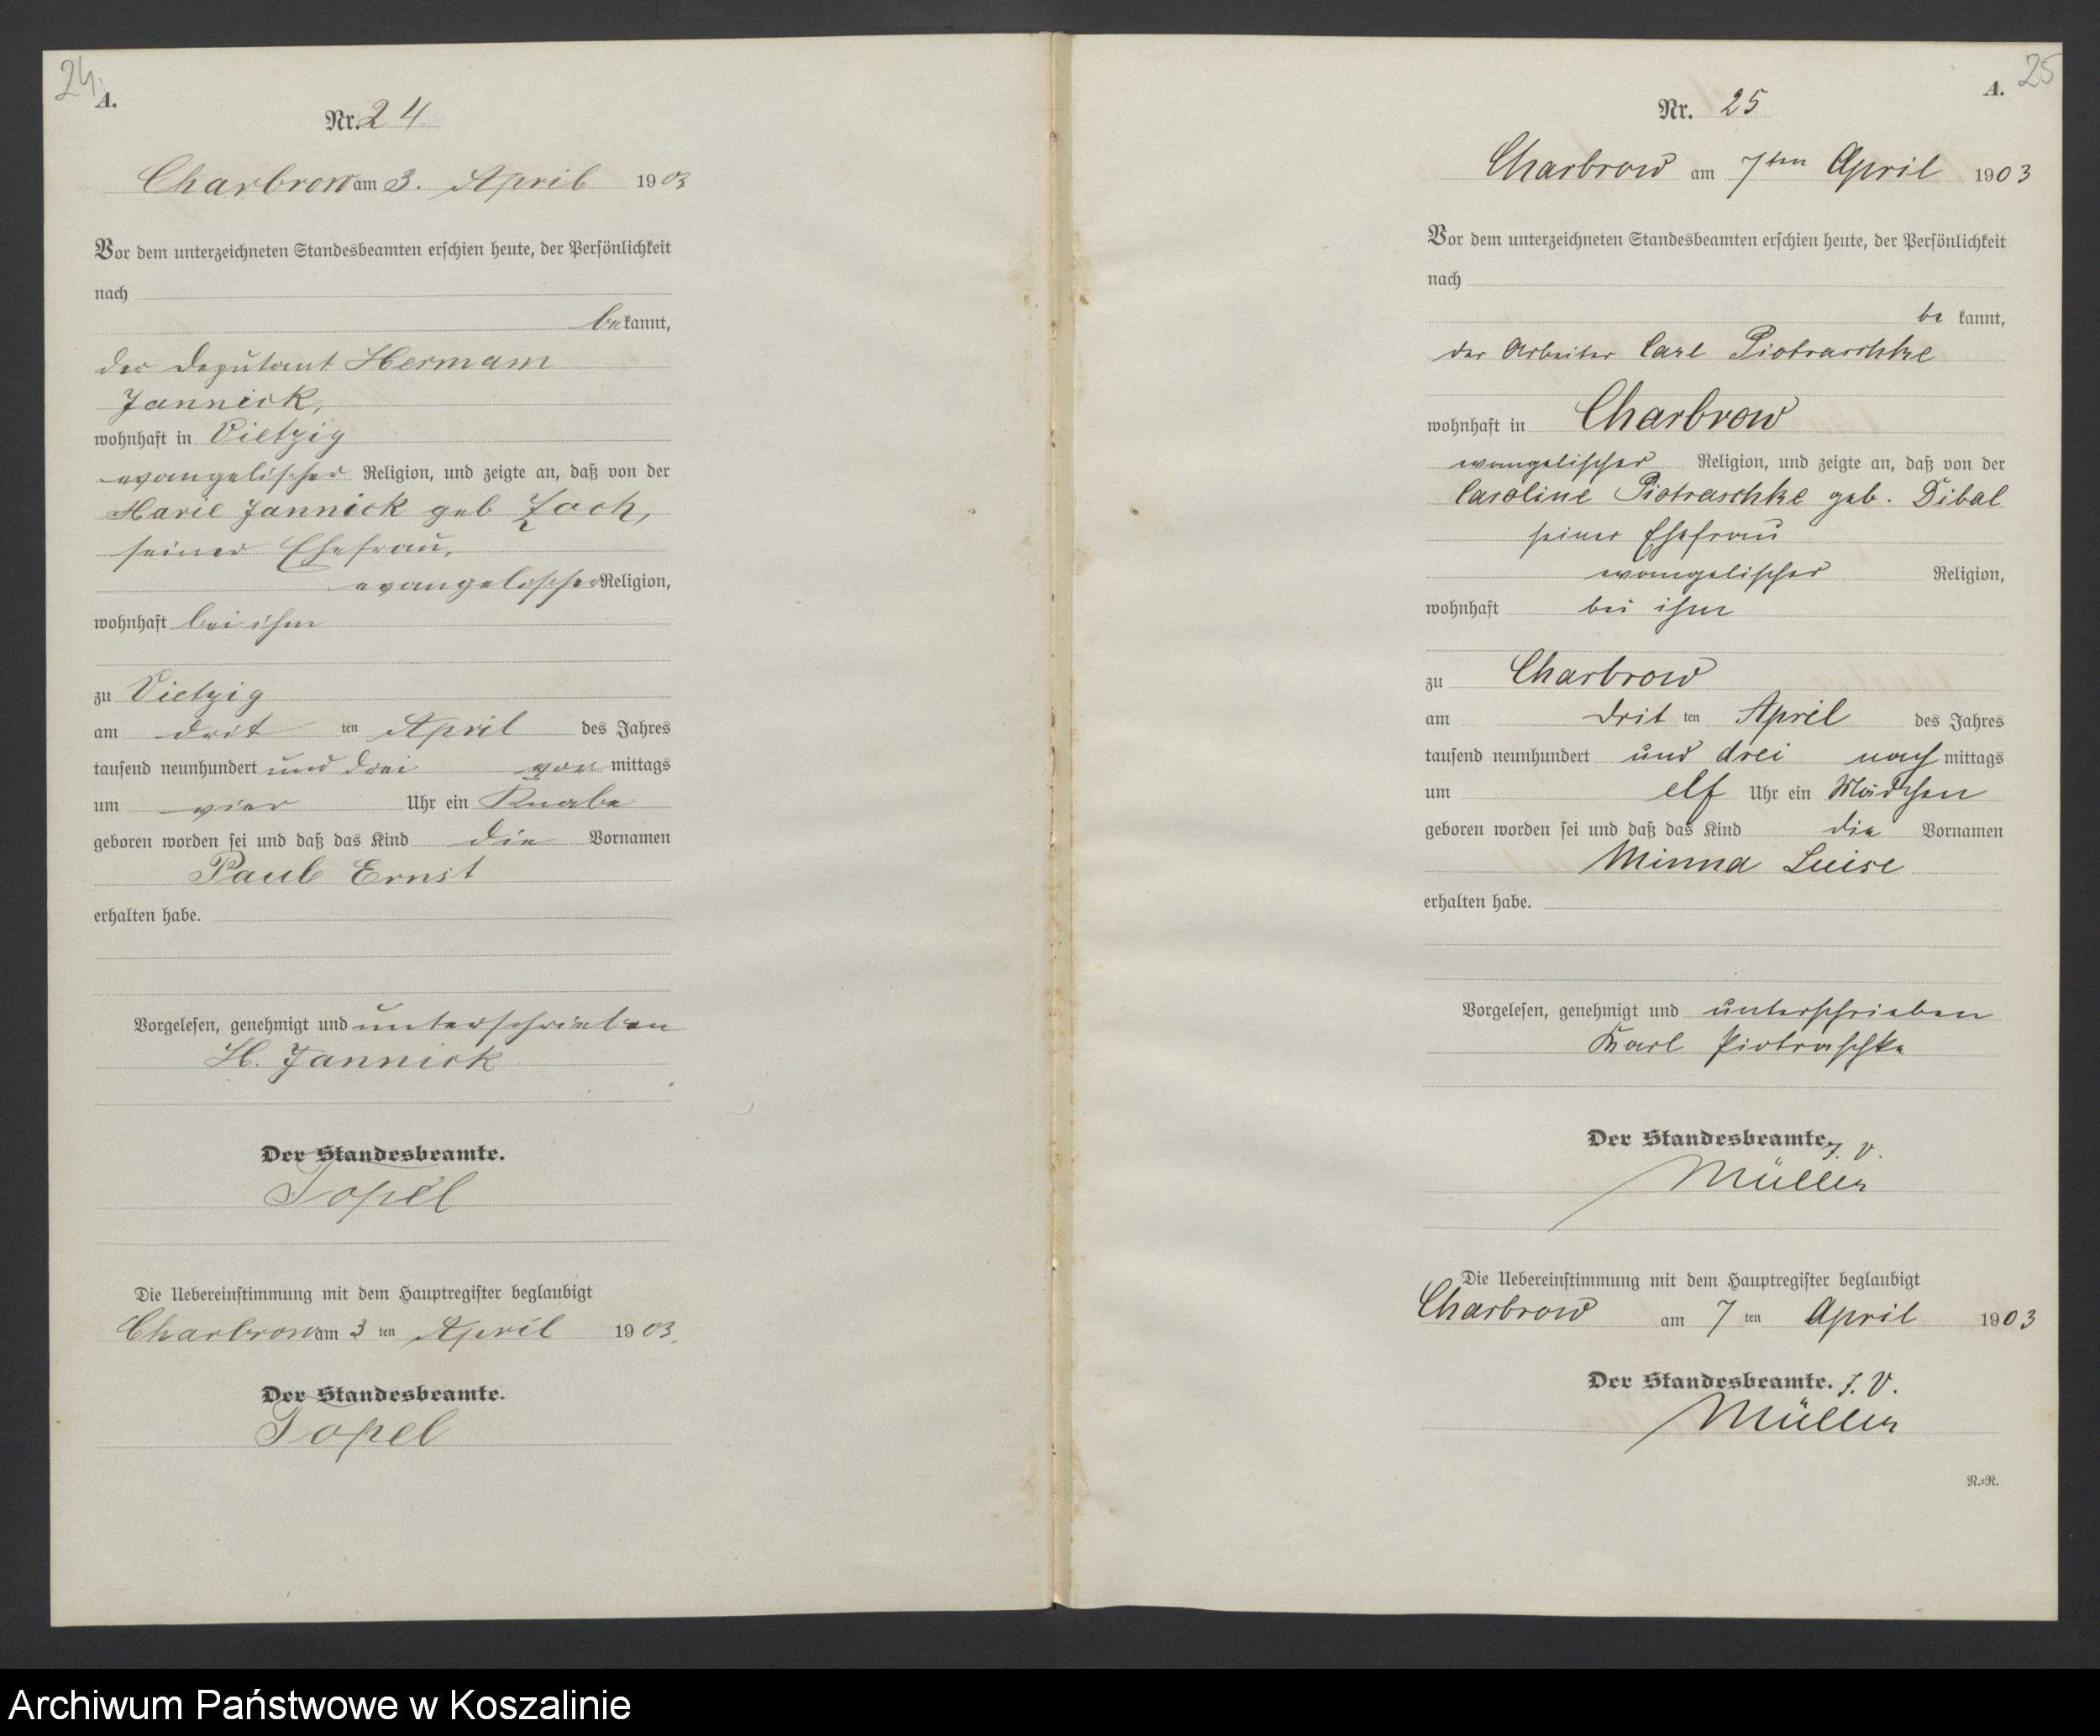 24.
A.
Nr. 24
Charbrow am 3. April 1903
Vor dem unterzeichneten Standesbeamten erschien heute, der Persönlichkeit
nach
bekannt,
der Deputant Hermann
Jannick,
wohnhaft in Vietzig
evangelischer Religion, und zeigte an, daß von der
Marie Jannick geb Zoch,
seiner Ehefrau,
evangelischer Religion,
wohnhaft bei ihm
zu Vietzig
am dritten April des Jahres
tausend neunhundert und drei vormittags
um vier Uhr ein Knabe
geboren worden sei und daß das Kind die Vornamen
Paul Ernst
erhalten habe.
Vorgelesen, genehmigt und unterschrieben
H. Jannick
Der Standesbeamte.
Topel
Die Uebereinstimmung mit dem Hauptregister beglaubigt
Charbrow am 3 ten April 1903.
Der Standesbeamte.
Topel
25
A.
Nr. 25
Charbrow am 7ten April 1903
Vor dem unterzeichneten Standesbeamten erschien heute, der Persönlichkeit
nach
bekannt,
der Arbeiter Carl Piotraschke
wohnhaft in Charbrow
evangelischer Religion, und zeigte an, daß von der
Caroline Piotraschke geb. Dibal
seiner Ehefrau
evangelischer Religion,
wohnhaft bei ihm
zu Charbrow
am dritten April des Jahres
tausend neunhundert und drei nachmittags
um elf Uhr ein Mädchen
geboren worden sei und daß das Kind die Vornamen
Minna Luise
erhalten habe.
Vorgelesen, genehmigt und unterschrieben
Karl Piotraschke
Der Standesbeamte. J. V.
Müller
Die Uebereinstimmung mit dem Hauptregister beglaubigt
Charbrow am 7 ten April 1903
Der Standesbeamte. J. V.
Müller
N.=R.
Archiwum Państwowe w Koszalinie